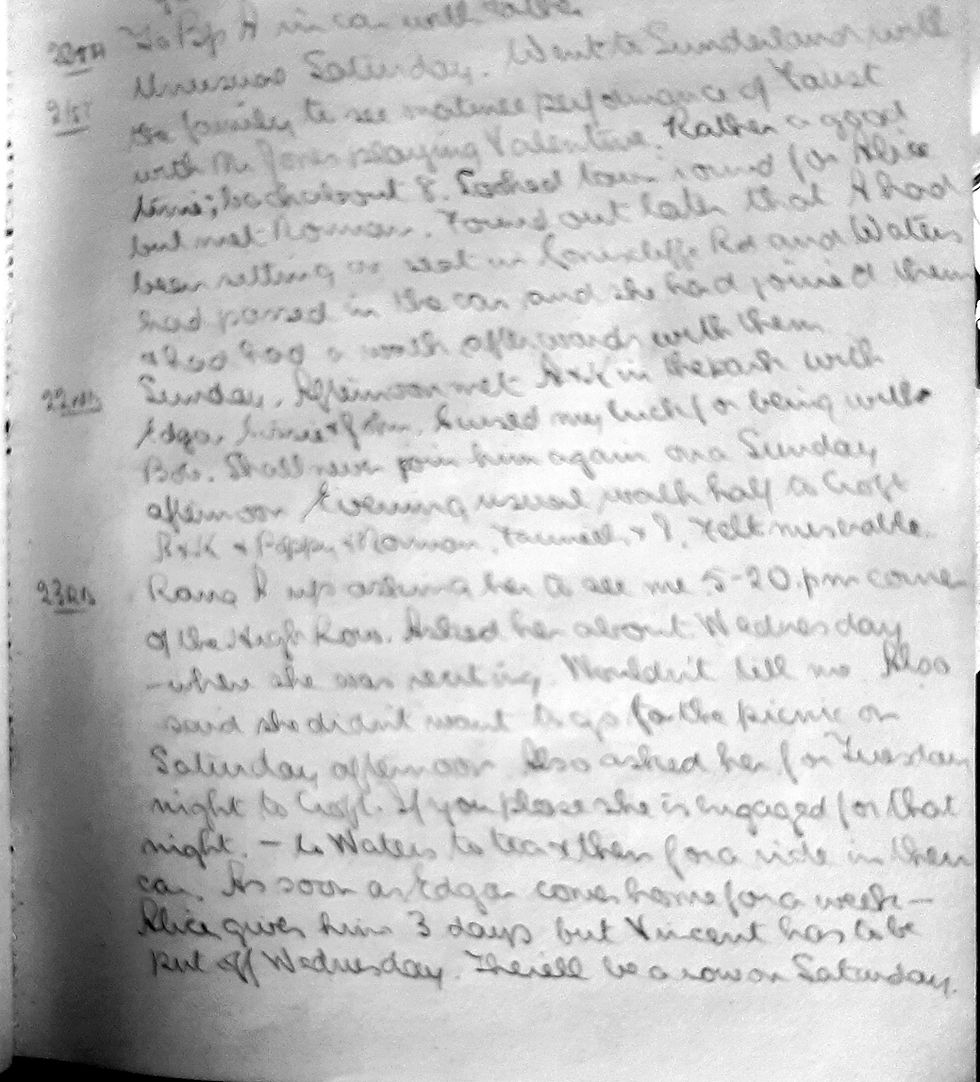 20TH To Bp A in car with
21ST Unusual Saturday. Went to Sunderland with
the family to see matinee performance of Faust
with Mr Jones playing Valentine. Rather a good
time; back about 8. Looked town round for Alice
but met Norman. Found out later that A had
been sitting on seat in Coniscliffe Rd and Waters
had passed in the car and she had joined them
& had had a walk afterwards with them
22ND Sunday. Afternoon met A & K in the park with
Edgar, & Jim. Cursed my luck for being with
Bob. Shall never join him again on a Sunday
afternoon Evening usual walk half to Croft
K & Poppy & Norman, & I. Felt miserable.
23RD Rang A up asking her to see me 5-20 pm corner
of the High Row. Asked her about Wednesday
- where she was resting. Wouldn't tell me. Also
said she didn't want to go for the picnic on
Saturday afternoon Also asked her for Tuesday
night to Croft. If you please she is engaged for that
night. - to Waters to tea & then for a ride in their
car. As soon as Edgar comes home for a week -
Alice gives him 3 days but Vincent has to be
put off Wednesday. There'll be a row on Saturday.